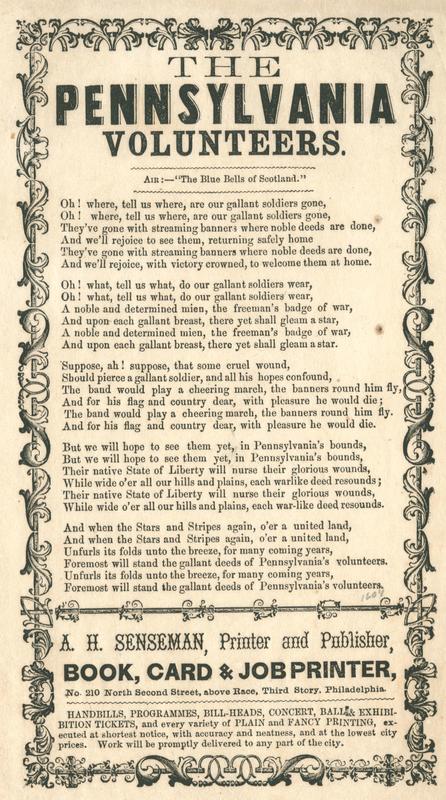 THE
PENNSYLVANIA
VOLUNTEERS.
AIR:—"The Blue Bells of Scotland."
Oh! where, tell us where, are our gallant soldiers gone,
Oh! where, tell us where, are our gallant soldiers gone,
They've gone with streaming banners where noble deeds are done,
And we'll rejoice to see them, returning safely home
They've gone with streaming banners where noble deeds are done,
And we'll rejoice, with victory crowned, to welcome them at home.
Oh! what, tell us what, do our gallant soldiers wear,
Oh! what, tell us what, do our gallant soldiers wear,
A noble and determined mien, the freeman's badge of war,
And upon each gallant breast, there yet shall gleam a star,
A noble and determined mien, the freeman's badge of war,
And upon each gallant breast, there yet shall gleam a star.
Suppose, ah! suppose, that some cruel wound,
Should pierce a gallant soldier, and all his hopes confound,
The band would play a cheering march, the banners round him fly,
And for his flag and country dear, with pleasure he would die;
The band would play a cheering march, the banners round him fly.
And for his flag and country dear, with pleasure he would die.
But we will hope to see them yet, in Pennsylvania's bounds,
But we will hope to see them yet, in Pennsylvania's bounds,
Their native State of Liberty will nurse their glorious wounds,
While wide o'er all our hills and plains, each warlike deed resounds;
Their native State of Liberty will nurse their glorious wounds,
While wide o'er all our hills and plains, each war-like deed resounds.
And when the Stars and Stripes again, o'er a united land,
And when the Stars and Stripes again, o'er a united land,
Unfurls its folds unto the breeze, for many coming years,
Foremost will stand the gallant deeds of Pennsylvania's volunteers.
Unfurls its folds unto the breeze, for many coming years,
Foremost will stand the gallant deeds of Pennsylvania's volunteers.
A. H. SENSEMAN, Printer and Publisher,
BOOK, CARD & JOB PRINTER,
No. 210 North Second Street, above Race, Third Story, Philadelphia.
HANDBILLS, PROGRAMMES, BILL-HEADS, CONCERT, BALL & EXHIBI-
BITION TICKETS, and every variety of PLAIN and FANCY PRINTING, ex-
ecuted at shortest notice, with accuracy and neatness, and at the lowest city
prices. Work will be promptly delivered to any part of the city.